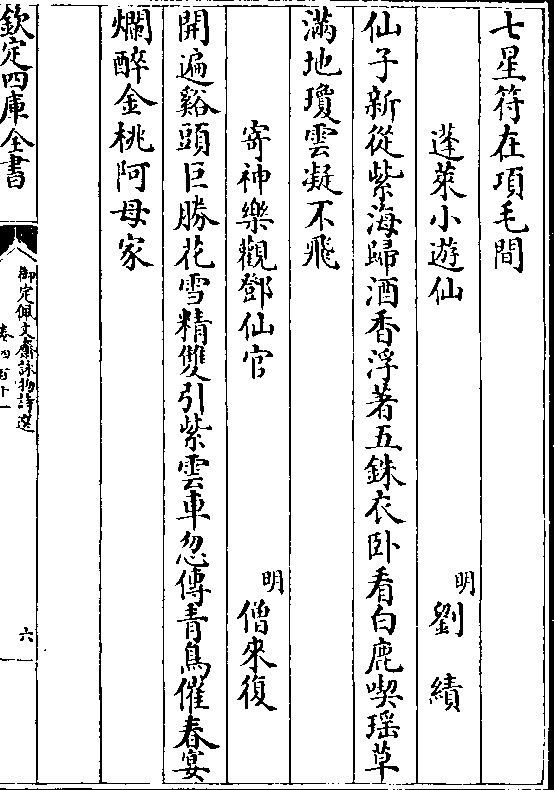 七星符在項毛間
蓬萊小遊仙
明劉績
仙子新從紫海歸酒香浮著五銖衣卧看白鹿喫瑶草
滿地瓊雲凝不飛
寄神樂觀鄧仙官
明僧來復
開遍谿頭巨勝花雪精雙引紫雲車忽傳青鳥催春宴
爛醉金桃阿母家
欽定四庫全書
御定佩文齋詠物詩選
卷四百十一
六